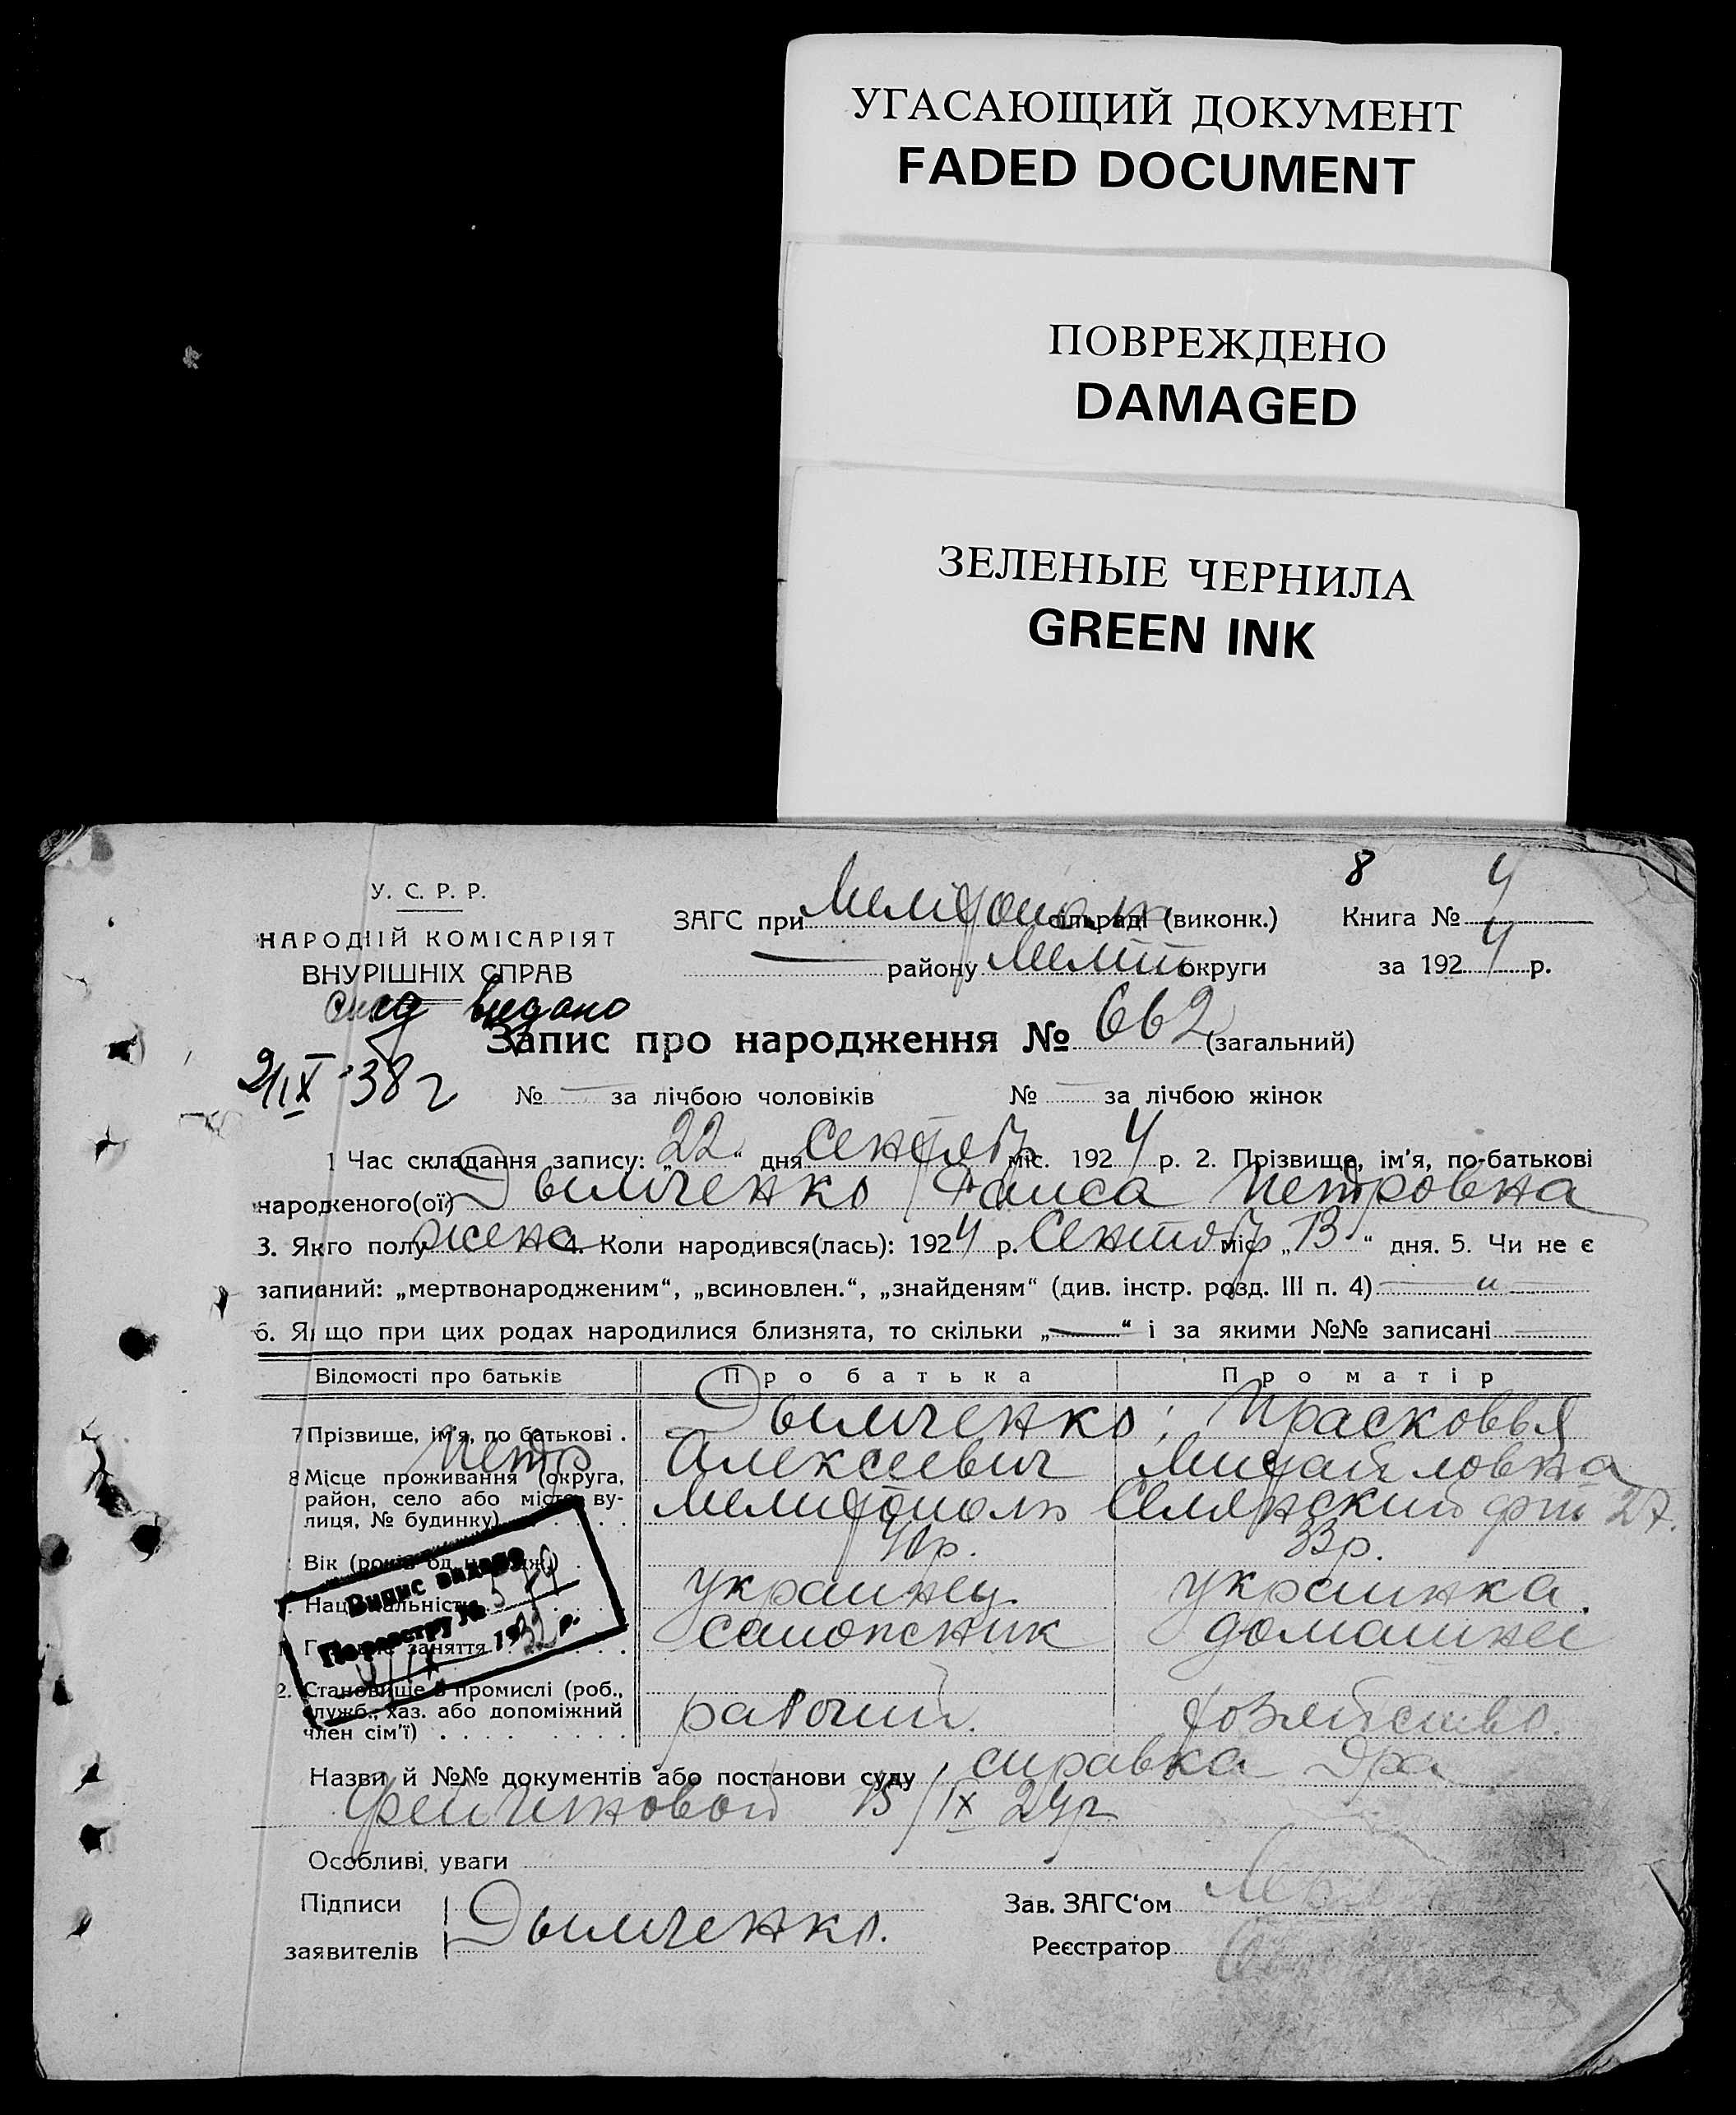 УГАСАЮЩИЙ ДОКУМЕНТ
FADED DOCUMENT
ПОВРЕЖДЕНО
DAMAGED
ЗЕЛЕНЫЕ ЧЕРНИЛА
GREEN INK
8 4
У. С. Р. Р.
НАРОДНІЙ КОМІСАРІЯТ
ВНУРІШНІХ СПРАВ
ЗАГС при Мелитополь сільраді (виконк.) Книга № 4
— району Мелит округи за 1924 р.
видано
Запис про народження № 662 (загальний)
2/IX 38 г
№ — за лічбою чоловіків № — за лічбою жінок
1 Час складання запису: „22“ дня Сентябр міс. 1924 р. 2. Прізвище, ім’я, по-батькові
народженого(ої) Дымченко Раиса Петровна
3. Якго полу жена 4. Коли народився(лась): 1924 р. Сентябр міс „13“ дня. 5. Чи не є
записаний: „мертвонародженим“, „всиновлен.“, „знайденям“ (див. інстр. розд. III п. 4) — „ —
6. Якщо при цих родах народилися близнята, то скільки „—“ і за якими №№ записані —
Відомості про батьків Про батька Про матір
7 Прізвище, ім’я, по батькові . Дымченко; Прасковья
Петр Алексеевич Михайловна
8 Місце проживання (округа, район, село або місто, вулиця, № будинку) Мелитополь 27.
Вік (років од народж.) 33р.
Національність украинец. украинка.
Головне заняття сапожник домашнее
2. Становище в промислі (роб., служб., хаз. або допоміжний член сім’ї) рабочий. хозяйство.
Випис видано
По реєстру №
193 р.
Назви й №№ документів або постанови суду справка Д-ра
15/IX 24г
Особливі уваги
Підписи
заявителів Дымченко.
Зав. ЗАГС‘ом
Реєстратор